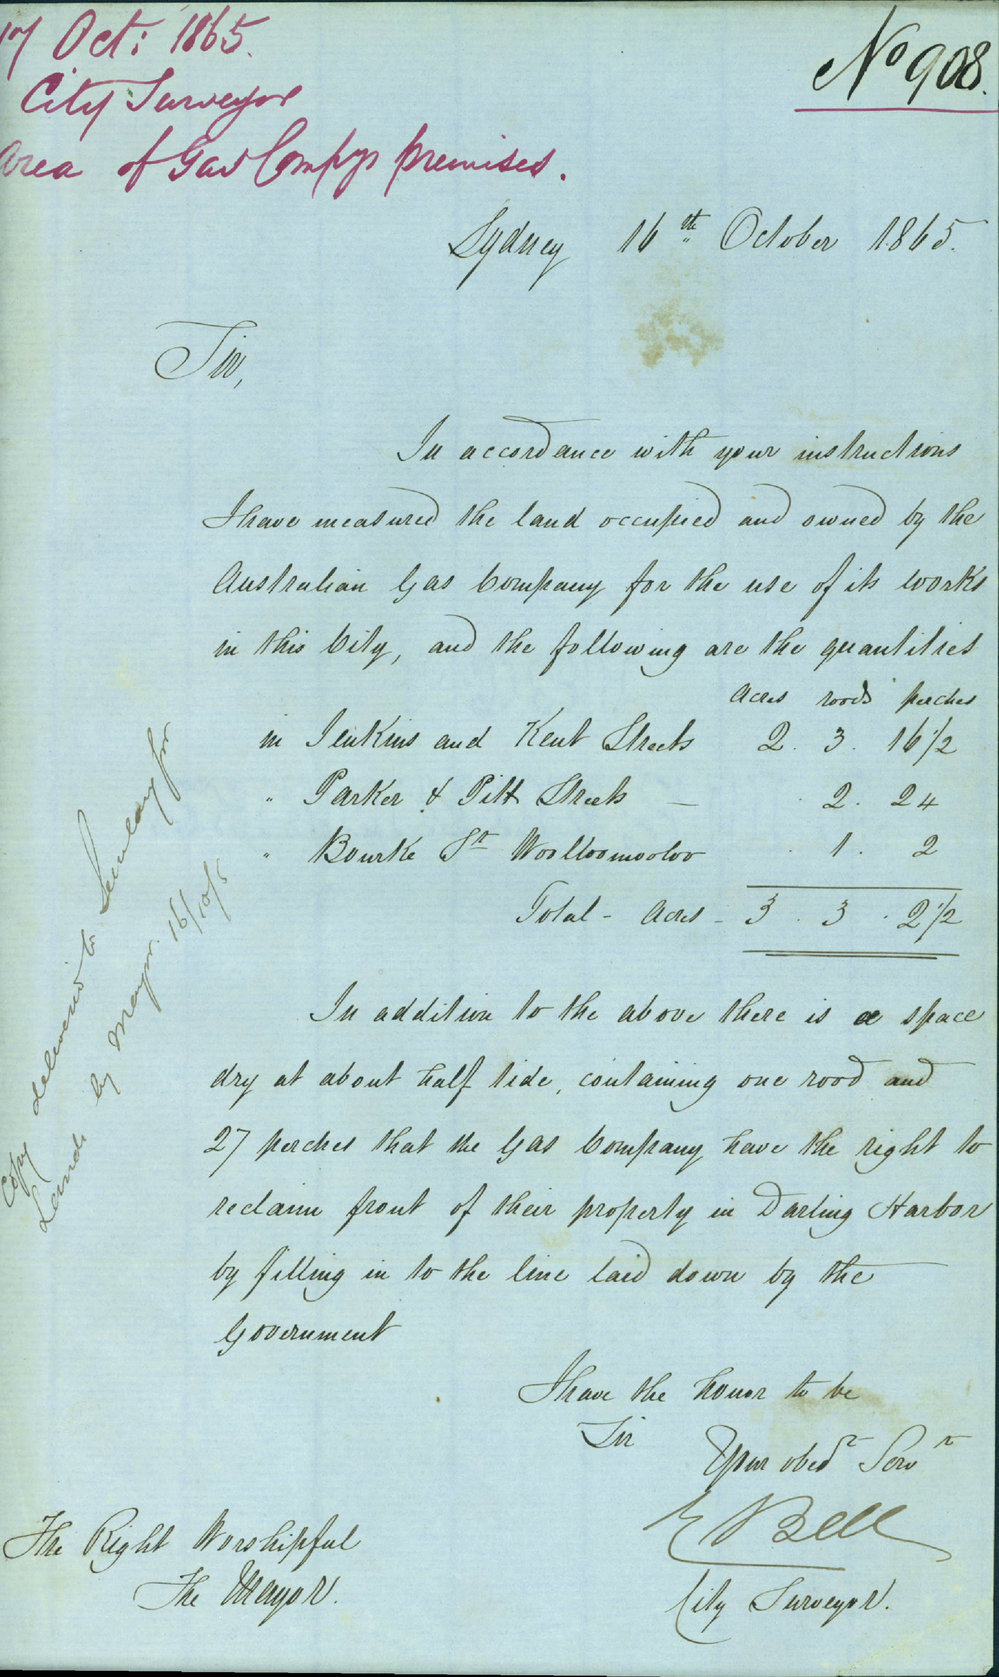 17 Oct: 1865.
City Surveyor
Area of Gas Compys premises.
No 908.
Sydney 16th October 1865.
Sir,
In accordance with your instructions
I have measured the land occupied and owned by the
Australian Gas Company for the use of its works
in this City, and the following are the quantities
Acres roods perches
in Jenkins and Kent Streets 2. 3. 16 1/2
" Parker & Pitt Streets — . 2. 24
" Bourke St Woolloomooloo . 1. 2
Total - Acres - 3. 3. 2 1/2
In addition to the above there is a space
dry at about half tide, containing one rood and
27 perches that the Gas Company have the right to
reclaim front of their property in Darling Harbor
by filling in to the line laid down by the
Government
I have the honor to be
Sir
Your obedt Servt
E Bell
City Surveyor.
The Right Worshipful
The Mayor.
Copy delivered to Secretary for
Lands by Mayor. 16/10/5